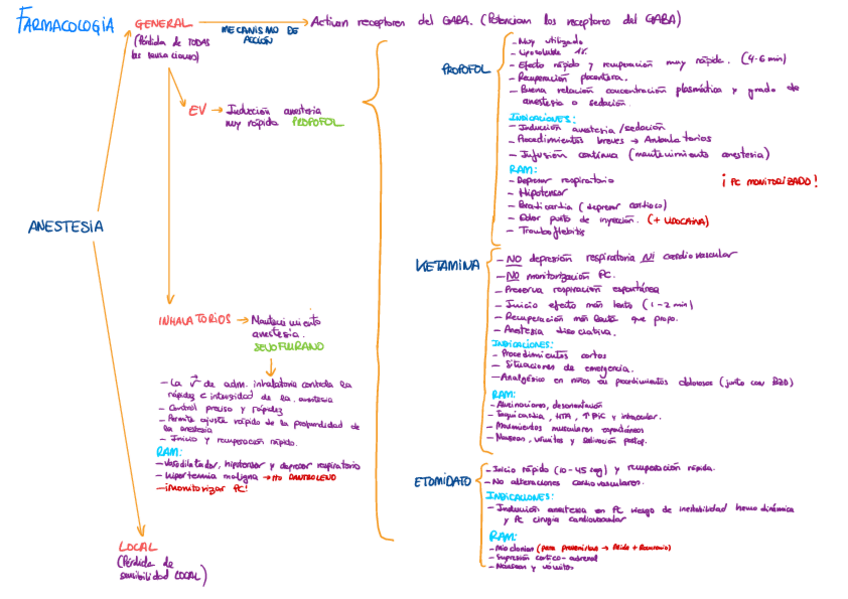 FARMACOLOGÍA
GENERAL
(Pérdida de TODAS
las sensaciones)
MECANISMO DE
ACCIÓN
Activan receptores del GABA. (Potencian los receptores del GABA)
EV → Inducción anestesia
muy rápida PROPOFOL
ANESTESIA
INHALATORIOS → Mantenimiento
anestesia.
SEVOFLURANO
- La v de adm. inhalatoria controla la
rápidez e intensidad de la anestesia
- Control preciso y rápidez
- Permite ajuste rápido de la profundidad de
la anestesia
- Inicio y recuperación rápido.
RAM:
- Vasodilatador, hipotensor y depresor respiratorio
- Hipertermia maligna → tto DANTROLENO
- ¡Monitorizar PC!
LOCAL
(Pérdida de
sensibilidad LOCAL)
PROPOFOL
- Muy utilizado
- Liposoluble
- Efecto rápido y recuperación muy rápida. (4-6 min)
- Recuperación placentera.
- Buena relación concentración plasmática y grado de
anestesia o sedación.
INDICACIONES:
- Inducción anestesia / sedación
- Procedimientos breves → Ambulatorios
- Infusión continua (mantenimiento anestesia)
RAM:
- Depresor respiratorio
¡PC MONITORIZADO!
- Hipotensor
- Bradicardia (depresor cardíaco)
- Dolor punto de inyección. (+ LIDOCAÍNA)
- Tromboflebitis
KETAMINA
- NO depresión respiratoria NI cardiovascular
- NO monitorización PC.
- Preserva respiración espontánea
- Inicio efecto más lento (1-2 min)
- Recuperación más lenta que propo.
- Anestesia disociativa.
INDICACIONES:
- Procedimientos cortos
- Situaciones de emergencia.
- Analgésico en niños en procedimientos dolorosos (junto con BZD)
RAM:
- Alucinaciones, desorientación
- Taquicardia, HTA, ↑ PIC y intraocular.
- Movimientos musculares espontáneos
- Nauseas, vómitos y salivación postop.
ETOMIDATO
- Inicio rápido (10-45 seg) y recuperación rápida.
- No alteraciones cardiovasculares.
INDICACIONES:
- Inducción anestesia en PC riesgo de inestabilidad hemodinámica
y PC cirugía cardiovascular
RAM:
- Mioclonias (para prevenirlas →
- Supresión cortico-adrenal
- Nauseas y vómitos